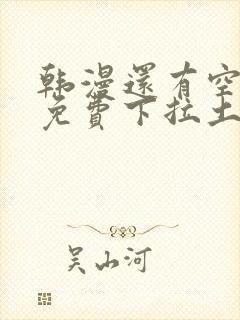 韩漫還有空
免費下拉土
吴山河